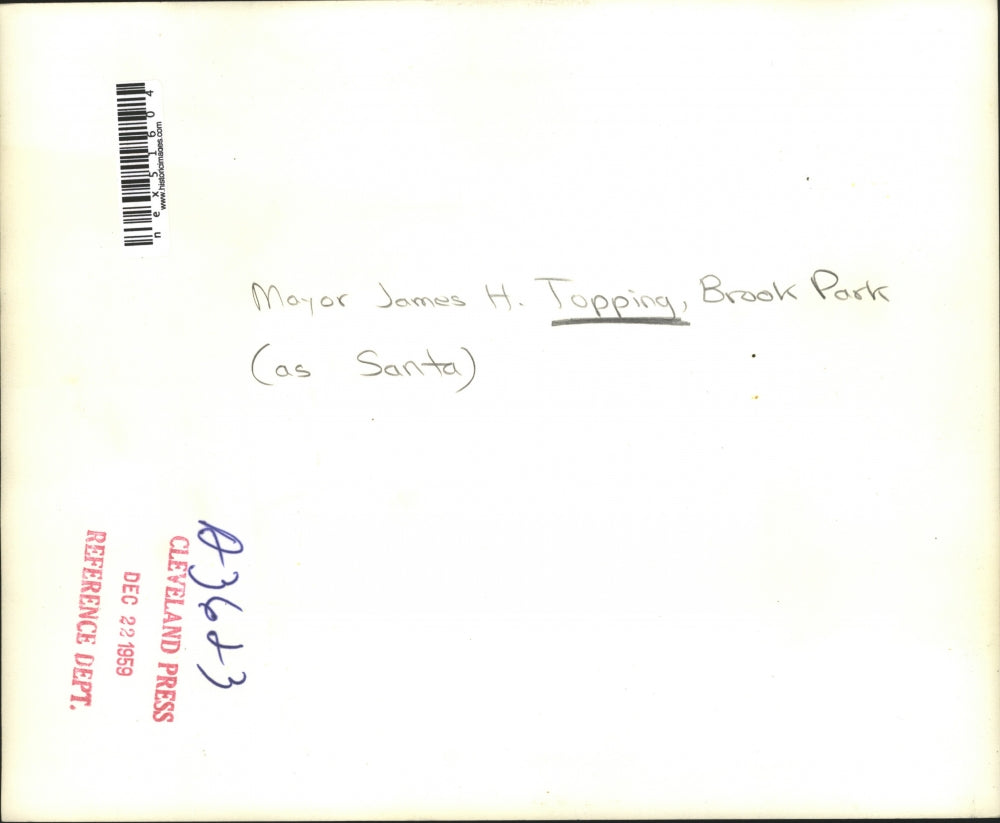 nex51604
www.historicimages.com
Mayor James H. Topping, Brook Park
(as Santa)
A3623
CLEVELAND PRESS
DEC 22 1959
REFERENCE DEPT.